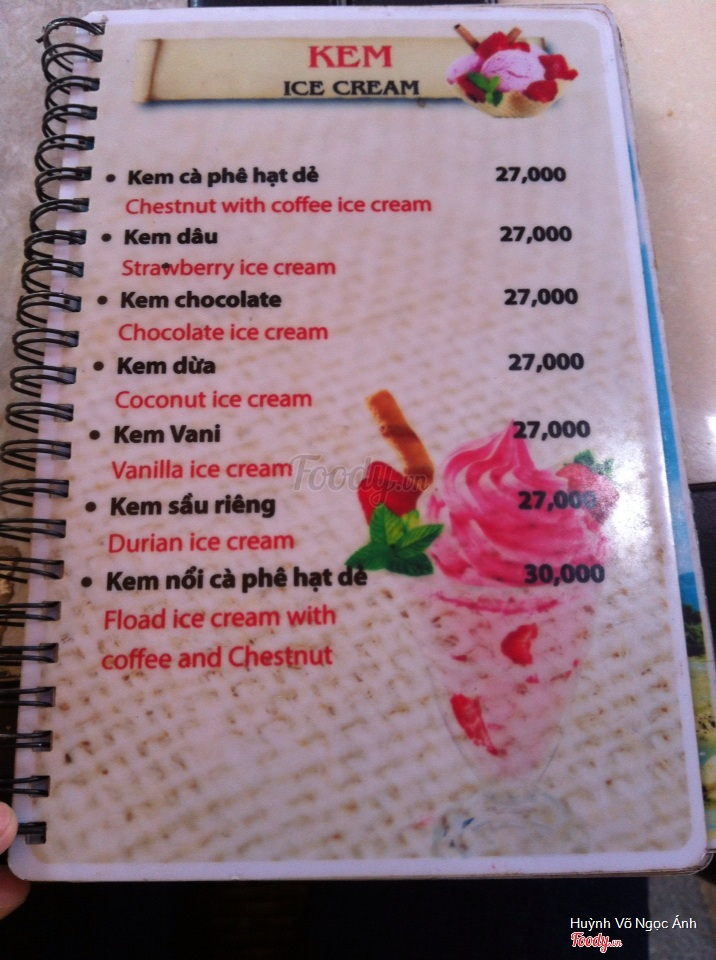 KEM
ICE CREAM
• Kem cà phê hạt dẻ 27,000
Chestnut with coffee ice cream
• Kem dâu 27,000
Strawberry ice cream
• Kem chocolate 27,000
Chocolate ice cream
• Kem dừa 27,000
Coconut ice cream
• Kem Vani 27,000
Vanilla ice cream
Foody.vn
• Kem sầu riêng 27,000
Durian ice cream
• Kem nổi cà phê hạt dẻ 30,000
Fload ice cream with
coffee and Chestnut
Huỳnh Võ Ngọc Ánh
Foody.vn